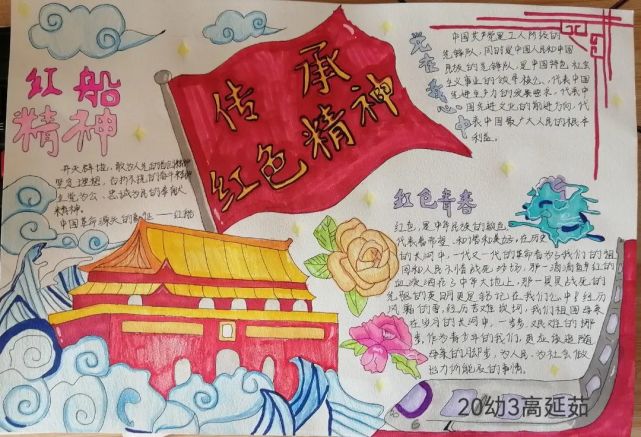 红船
精神
传承
红色精神
党在我心中
中国共产党是工人阶级的
先锋队，同时是中国人民和中国
民族的先锋队，是中国特色社会
主义事业的领导核心，代表中国
先进生产力的发展要求，代表中
国先进文化的前进方向，代
表中国最广大人民的根本
利益。
开天辟地，敢为人先的首创精神
坚定理想，百折不挠的奋斗精神
立党为公、忠诚为民的奉献
精神。
中国革命源头的象征——红船
红色青春
红色，是中华民族的
代表着希望、和谐和
的长河中，一代又一代的革命者为了我们的祖
国和人民不惜战死沙场，那一滴滴鲜红的
血液洒在了中华大地上，那一
先驱的英明更是铭记在我们心中，
风霜的
在岁月的长河中，一步步艰难的挪
步，作为青少年的我们，更应该追随
母亲的脚步，为人民、为社会做
出力所能及的事情。
20幼3高延茹